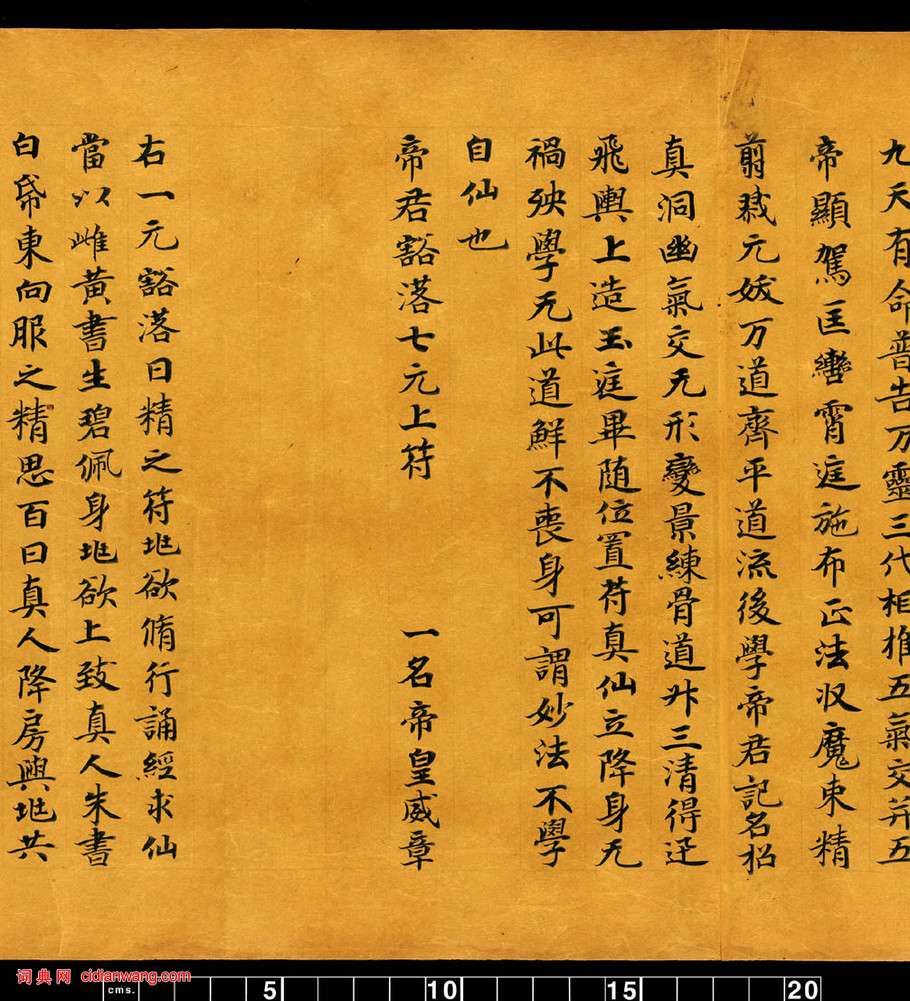 九天有命普告万靈三代相推五氣交并五
帝顯駕匡轡霄庭施布正法収魔束精
翦裁元妖万道齊平道流後學帝君記名招
真洞幽氣交无形變景練骨道升三清得迅
飛輿上造玉庭畢随位置苻真仙立降身无
禍殃學无此道鮮不喪身可謂妙法不學
自仙也
帝君豁落七元上苻 一名帝皇威章
右一元豁落日精之苻也欲脩行誦經求仙
當以雌黄書生碧佩身也欲上致真人朱書
白帋東向服之精思百日真人降房與也共
词典网 cidianwang.com
cms. 5 10 15 20